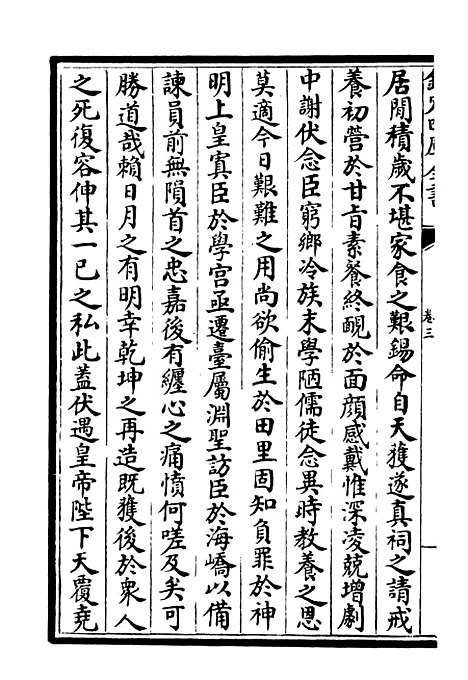 欽定四庫全書
卷三
居閒積歲不堪家食之艱錫命自天獲遂真祠之請戒
養初營於甘旨素餐終靦於面顔感戴惟深凌兢增劇
中謝伏念臣窮鄉冷族末學陋儒徒念異時教養之恩
莫適今日艱難之用尚欲偷生於田里固知負罪於神
明上皇寘臣於學宫亟遷臺屬淵聖訪臣於海嶠以備
諫員前無隕首之忠嘉後有纒心之痛憤何嗟及矣可
勝道哉賴日月之有明幸乾坤之再造既獲後於衆人
之死復容伸其一已之私此蓋伏遇皇帝陛下天覆堯